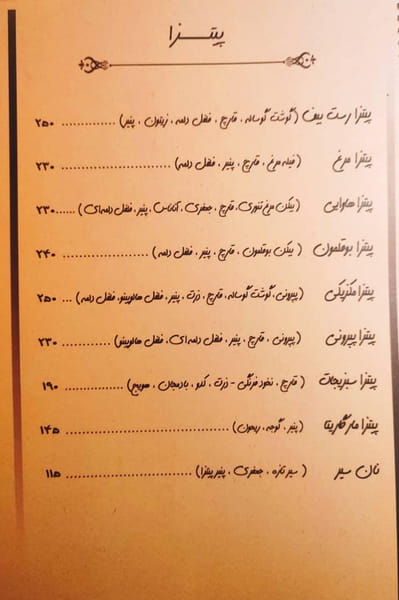 پیتزا
پیتزا رست بیف (گوشت گوساله ، قارچ ، فلفل دلمه ، زیتون ، پنیر) ............. ۲۵۰
پیتزا مرغ (فیله مرغ ، قارچ ، پنیر ، فلفل دلمه) .................... ۲۳۰
پیتزا هاوایی (بیکن مرغ تنوری، قارچ ، جعفری ، آناناس ، پنیر ، فلفل دلمه ای) ......۲۳۰
پیتزا بوقلمون (بیکن بوقلمون ، قارچ ، پنیر ، فلفل دلمه) ................ ۲۴۰
پیتزا مکزیکی (پپرونی، گوشت گوساله، قارچ ، ذرت ، پنیر ، فلفل هالوپینو، فلفل دلمه) ... ۲۵۰
پیتزا پپرونی (پپرونی ، قارچ ، پنیر ، فلفل دلمه ای، فلفل هالوپینو) ............ ۲۳۰
پیتزا سبزیجات (قارچ ، نخود فرنگی - ذرت ، کدو ، بادمجان ، هویج) .............. ۱۹۰
پیتزا مارگاریتا (پنیر ، گوجه ، ریحون) ................................ ۱۴۵
نان سیر (سیر تازه ، جعفری ، پنیر پیتزا) ........................... ۱۱۵